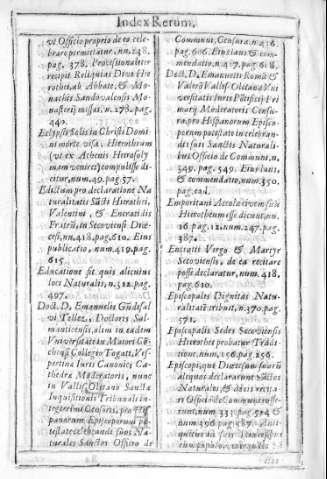 Index Rerum.
ut Officio proprio de eo cele-
brare permittatur, nu. 248.
pag. 378. Processionaliter
recipit Reliquias Divi Hie
rothei, ab Abbate, & Mo-
nachis Sandovalensis Mo-
nasterij missas, n. 278. pag.
440.
Eclypsis Solis in Christi Domi
ni morte visa, Hierotheum
(ut ex Athenis Hierosoly
mam veniret) compulisse di-
citur, num. 49. pag. 57.
Edictum pro declaratione Na
turalitatis Sāctī Hierothei,
Valentini, & Encratidis
Fratrū, in Secoviensi Diœ-
cesi, nu. 418, pag. 610. Eius
publicatio, num. 419. pag.
615.
Educatione sit quis alicuius
loci Naturalis, n. 312. pag.
497.
Doct. D. Emanuelis
vi Tellez, Doctoris Sal-
manticensis, olim in eadem
Universitate in Maiori
Collegio Togati, Ves-
pertina Iuris Canonici Ca-
thedræ Moderatoris, nunc
in Vallis Oletano Sanctæ
Inquisitionis Tribunali in-
tegerrimi Censoris, pro
panorum Episcoporum po
testate celebrandi suos Na-
turales Sanctos Officio de
Communi, Censura, n. 416.
pag. 606. Eiusdem com-
mendatio, n. 417. pag. 618.
Doct. D. Emanuelis Romā &
Valerō Vallis Oletana Uni
versitatis Iuris Pōtificij Pri
marij Moderatoris Censu-
ra, pro Hispanorum Episco-
porum potestate in celebran-
dis suis Sanctis Naturali-
bus Officio de Communi, n.
349. pag. 549. Eiusdem,
& commendatio, num. 350.
pag. ead.
Emporitani Accolæ civem suū
Hierotheum esse dicunt, nu.
16. pag. 12. num. 247. pag.
387.
Encratis Virgo & Martyr
Secoviensis, de ea recitare
posse declaratur, num. 418.
pag. 610.
Episcopalis Dignitas Natu-
ralitatē tribuit, n. 370. pag.
571.
Episcopalis Sedes Secoviensis
Hierotheo probatur Tradi-
tione, num. 156. pag. 256.
Episcopi, qui Diœcesum suarū
aliquos declararunt Sāctos
Naturales, & de eis recita-
ri Officio de Communi
runt, num. 331. pag. 504 &
num 396. pag. 587.